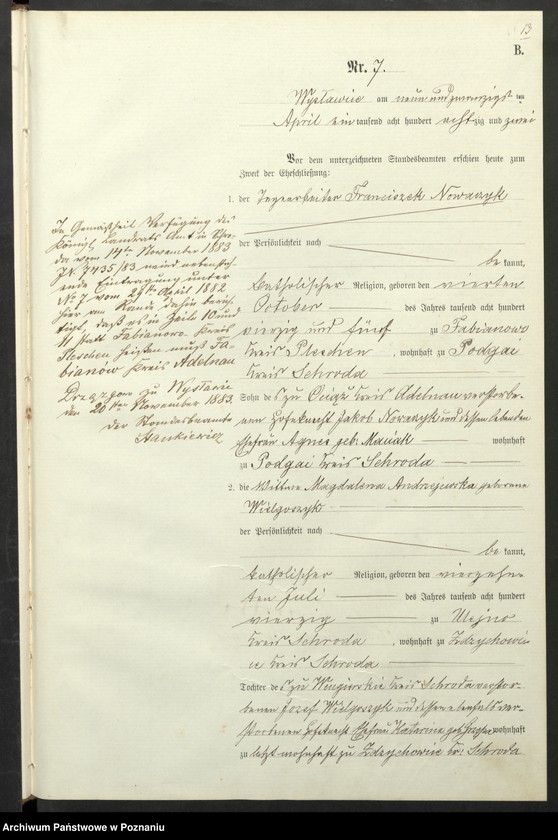 13
B.
Nr. 7.
am neun und zwanzigst ten
April ein tausend acht hundert achtzig und zwei
Vor dem unterzeichneten Standesbeamten erschien heute zum
Zweck der Eheschließung:
1. der Franciszek Nowaczyk
der Persönlichkeit nach
be kannt,
katholischer Religion, geboren den vierten
October des Jahres tausend acht hundert
vierzig und fünf zu Fabianowo
Kreis Pleschen, wohnhaft zu Podgai
Kreis Schroda
Sohn des zu Kreis Adelnau verstorbe-
nen Jakob Nowaczyk und dessen lebenden
Ehefrau Agnes geb. wohnhaft
zu Podgai Kreis Schroda
2. die Wittwe Magdalena geborene
Wielgoszyk
der Persönlichkeit nach
be kannt,
katholischer Religion, geboren den vierzehn-
ten Juli des Jahres tausend acht hundert
vierzig zu Ulejno
Kreis Schroda, wohnhaft zu Zdzychowi-
ce Kreis Schroda
Tochter des zu Kreis Schroda verstor-
benen Josef Wielgoszyk und dessen ebenfalls ver-
storbenen Ehefrau Katarina geb. wohnhaft
zu letzt wohnhaft zu Zdzychowice Kr. Schroda
In Gemäßheit Verfügung des
Königl. Landrats Amt in Schro-
da vom 14ten November 1883
J.N. 7435/83 wird nebensteh-
ende Eintragung unter
No 7 vom 29ten April 1882
hier am Rande dahin berich-
tigt, daß es in Zeile 10 und
11 statt Fabianowo Kreis
Pleschen heißen muß Fa-
bianow Kreis Adelnau
zu
am 20ten November 1883.
Der Standesbeamte
Stankiewicz
Archiwum Państwowe w Poznaniu